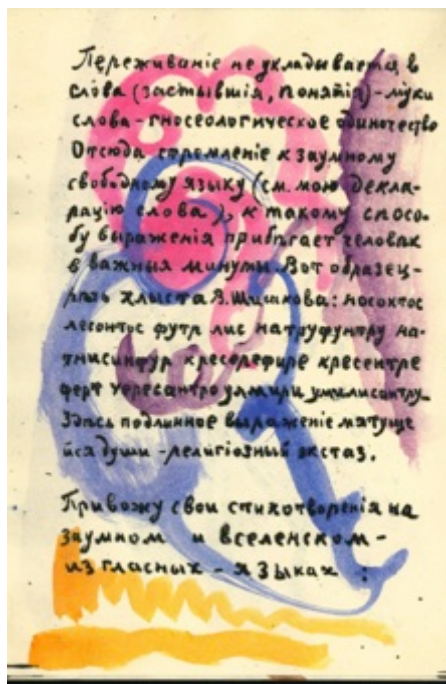 Переживаніе не укладывается в
слова (застывшія, понятія) - муки
слова - гносеологическое одиночество
Отсюда стремленіе к заумному
свободному языку (см. мою декла-
рацію слова), к такому спосо-
бу выраженія прибѣгает человѣк
в важныя минуты. Вот образец -
рѣчь хлыста В. Шишкова: носоктос
лесонтос футр лис натруфунтру на-
тнисинтур кресерефире кресентре
ферт чересантро улмири умилисантру
Здѣсь подлинное выраженіе мятуще
йся души - религіозный экстаз.
Привожу свои стихотворенія на
заумном и вселенском -
из гласных - языках :